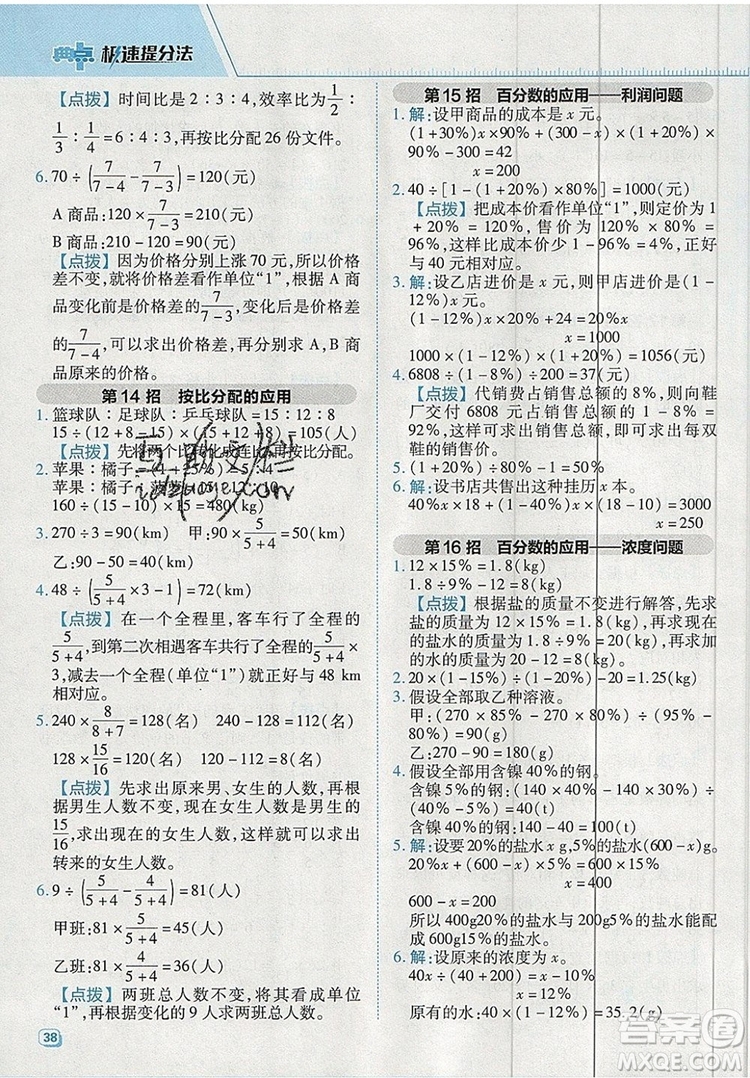 典中点 极速提分法
【点拨】时间比是2∶3∶4,效率比为1/2∶
1/3∶1/4=6∶4∶3,再按比分配26份文件。
6. 70÷(7/(7-4)-7/(7-3))=120(元)
A商品:120×7/(7-3)=210(元)
B商品:210-120=90(元)
【点拨】因为价格分别上涨70元,所以价格
差不变,就将价格差看作单位“1”,根据A商
品变化前是价格差的7/(7-3),变化后是价格差的
7/(7-4),可以求出价格差,再分别求A商品、B商
品原来的价格。
第14招 按比分配的应用
1. 篮球队∶足球队∶乒乓球队=15∶12∶8
15÷(12+8-15)×(15+12+8)=105(人)
【点拨】先将两个比化成连比,再按比分配。
2. 苹果∶橘子=(1+25%)=5∶4
苹果∶橘子∶菠萝=15∶12∶10
160÷(15-10)×15=480(kg)
3. 270÷3=90(km) 甲:90×5/(5+4)=50(km)
乙:90-50=40(km)
4. 48÷(5/(5+4)×3-1)=72(km)
【点拨】在一个全程里,客车行了全程的
5/(5+4),到第二次相遇客车共行了全程的5/(5+4)×
3,减去一个全程(单位“1”),正好与48 km
相对应。
5. 240×8/(8+7)=128(名) 240-128=112(名)
128×15/16=120(名) 120-112=8(名)
【点拨】先求出原来男、女生的人数,再根
据男生人数不变,现在女生人数是男生的
15/16,求出现在的女生人数,这样就可以求出
转来的女生人数。
6. 9÷(5/(5+4)-4/(5+4))=81(人)
甲班:81×5/(5+4)=45(人)
乙班:81×4/(5+4)=36(人)
【点拨】两班总人数不变,将其看成单位
“1”,根据变化的9人求两班总人数。
38
第15招 百分数的应用——利润问题
1. 解:设甲商品的成本是x元。
(1+30%)x×90%+(300-x)×(1+20%)×
90%-300=42
x=200
2. 40÷[1-(1+20%)×80%]=1000(元)
【点拨】把成本价看作单位“1”,则定价为1
+20%=120%,售价为120%×80%=
96%,这样比成本价少1-96%=4%,正好
与40元相对应。
3. 解:设乙店进价是x元,则甲店进价是(1-
12%)x元。
(1-12%)x×20%+24=20%x
x=1000
1000×(1-12%)×(1+20%)=1056(元)
4. 6808÷(1-8%)÷200=37(元)
【点拨】代销费占销售总额的8%,则向鞋
厂交付6808元是销售总额的(1-8%),由
此可以求出销售总额,这样也可求出每双
鞋的销售价。
5. (1+20%)×(1+80%×50%)-1=50%
6. 解:设书店共售出这种挂历x本。
40%x×18+(1-40%)x×10=2640
x=200
第16招 百分数的应用——浓度问题
1. 12×15%=1.8(kg)
1.8÷9%-12=8(kg)
【点拨】根据盐的质量不变进行解答,先求
盐的质量12×15%=1.8(kg),再求现在的
盐水的质量为1.8÷9%=20(kg),所以增
加的水的质量为20-12=8(kg)。
2. 20×(1-15%)÷(1-20%)-20=1.25(kg)
3. 假设全部取乙种溶液。
甲:(270×85%-270×80%)÷(95%-
80%)=90(g)
乙:270-90=180(g)
4. 假设全部用含镍40%的钢。
含镍5%的钢:(140×40%-140×30%)÷
(40%-5%)=40(t)
含镍40%的钢:140-40=100(t)
5. 解:设要20%的盐水x g,5%的盐水(600-x)g。
20%x+(600-x)×5%=600×15%
x=400
600-x=200
所以400g20%的盐水与200g5%的盐水能配
成600g15%的盐水。
6. 解:设原来的浓度为x。
40x÷(40-8)=(x+3%)
x=12%
原有的水:40×(1-12%)=35.2(g)
答案圈
MXQE.COM